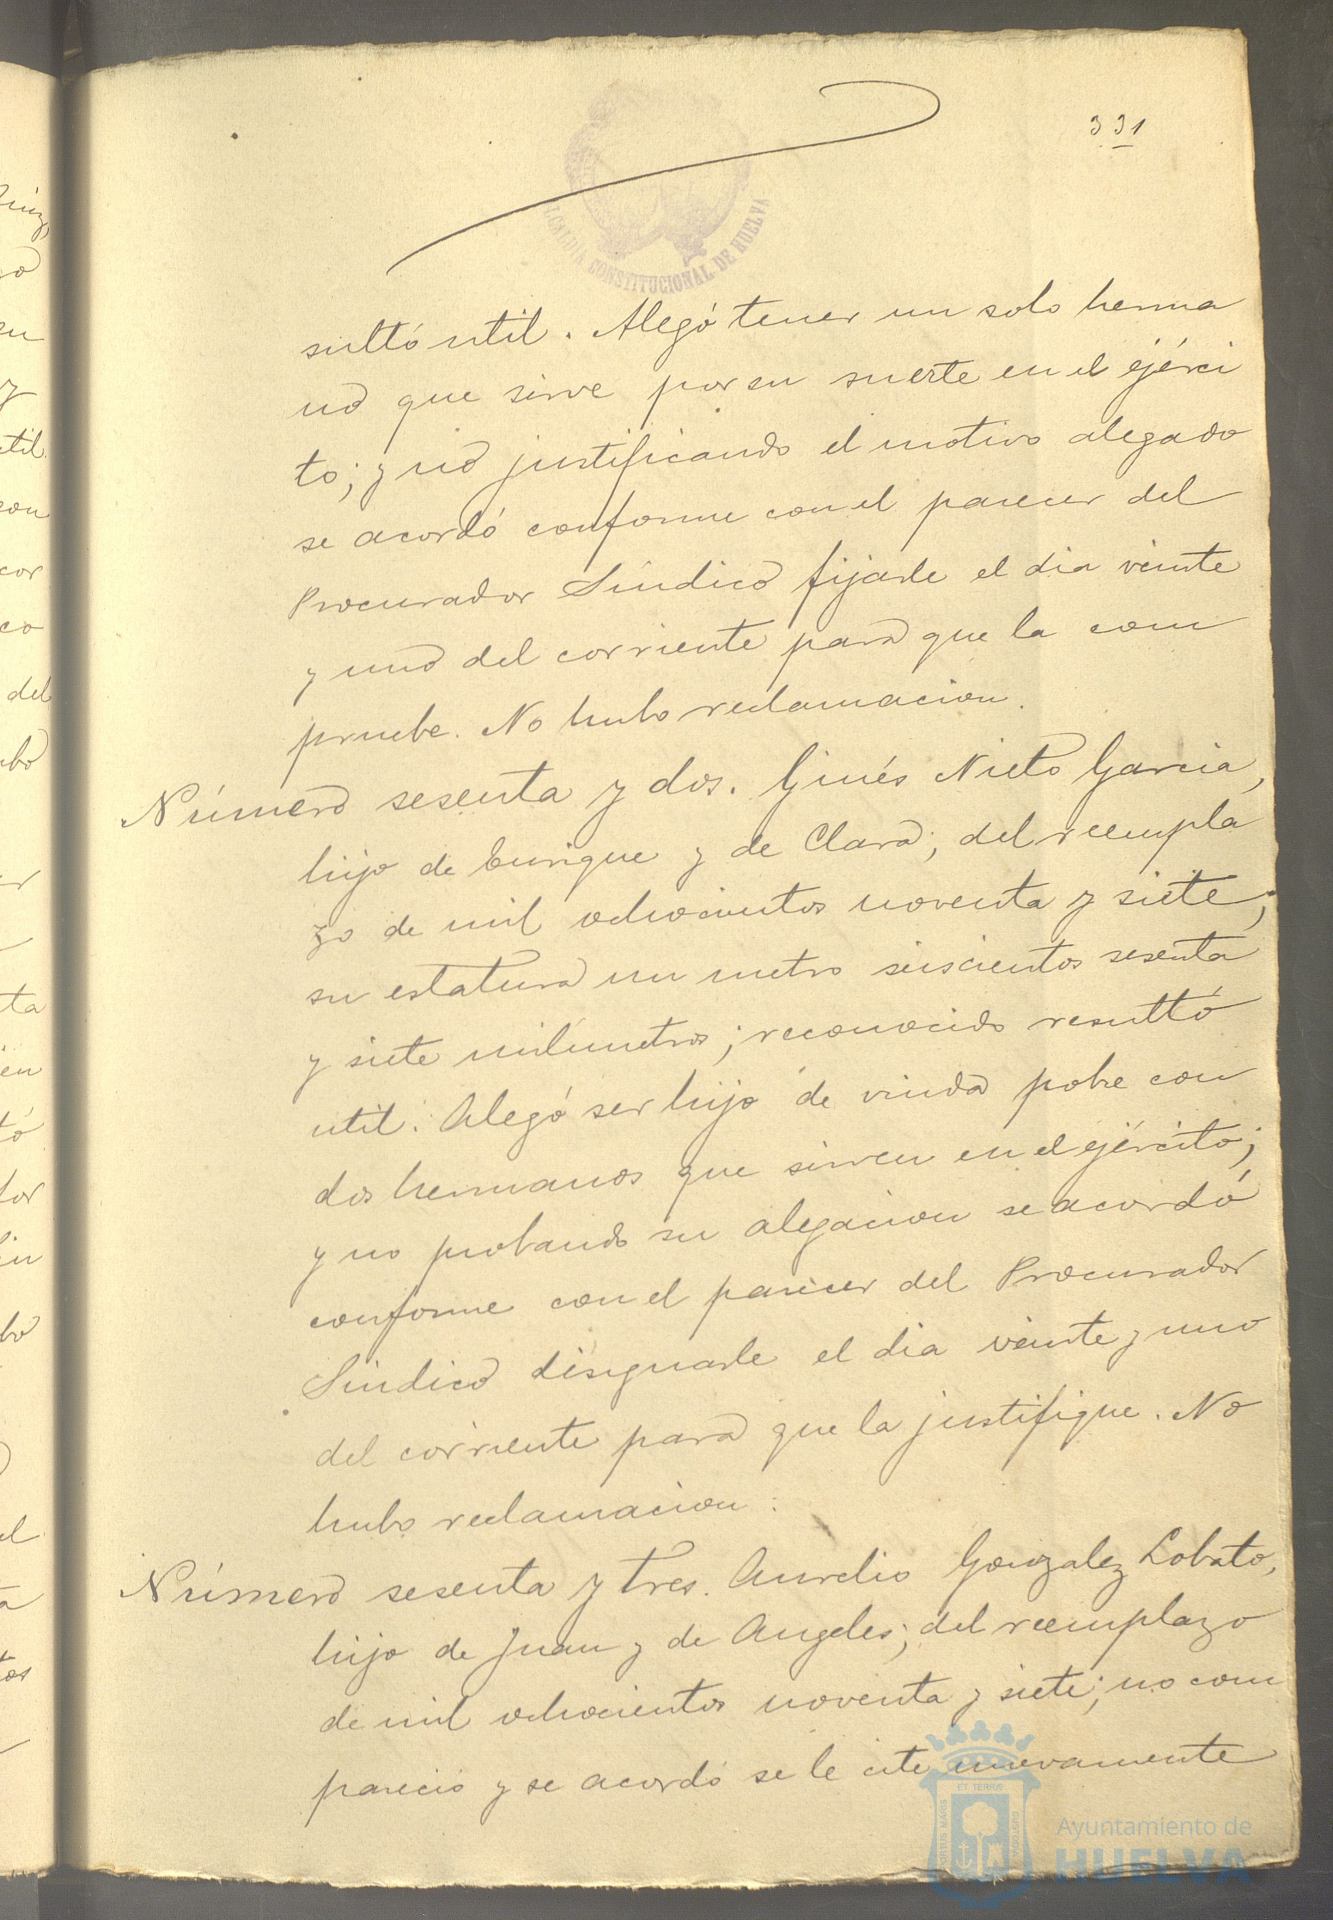 331
ALCALDIA CONSTITUCIONAL DE HUELVA
sultó util. Alegó tener un solo herma
no que sirve por su suerte en el ejérci
to; y nó justificando el motivo alegado
se acordó conforme con el parecer del
Procurador Síndico fijarle el dia veinte
y uno del corriente para que la com
pruebe. No hubo reclamacion.
Número sesenta y dos. Ginés Nieto Garcia,
hijo de Enrique y de Clara; del reempla
zo de mil ochocientos noventa y siete;
su estatura un metro seiscientos sesenta
y siete milímetros; reconocido resultó
util. Alegó ser hijo de viuda pobre con
dos hermanos que sirven en el ejército;
y no probando su alegacion se acordó
conforme con el parecer del Procurador
Síndico designarle el dia veinte y uno
del corriente para que la justifique. No
hubo reclamacion.
Número sesenta y tres. Aurelio Gonzalez Lobato,
hijo de Juan y de Angeles; del reemplazo
de mil ochocientos noventa y siete; no com
pareció y se acordó se le cite nuevamente
Ayuntamiento de
HUELVA